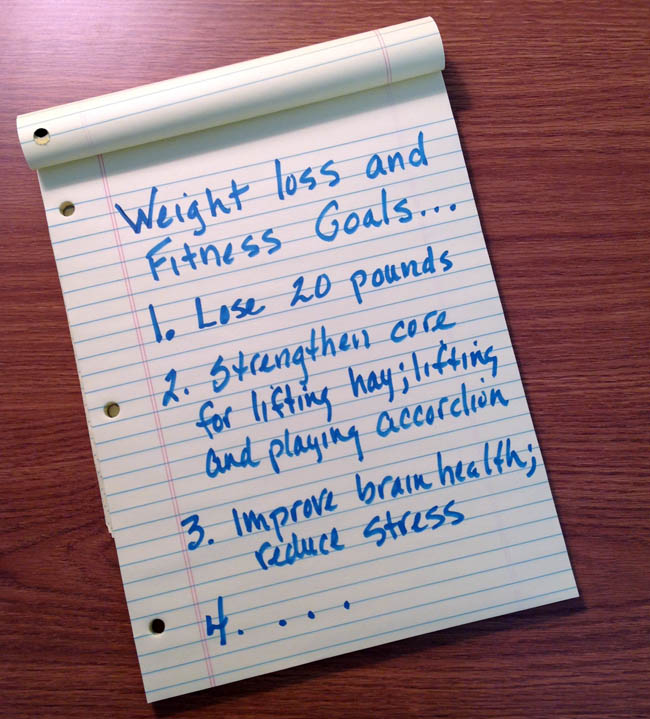 Weight loss and
Fitness Goals...
1. Lose 20 pounds
2. Strengthen core
for lifting hay; lifting
and playing accordion
3. Improve brain health;
reduce stress
4. . . .